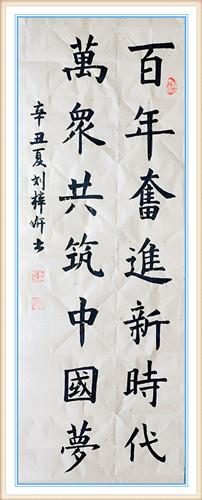 百年奮進新時代
萬衆共筑中國夢
辛丑夏刘梓妍书